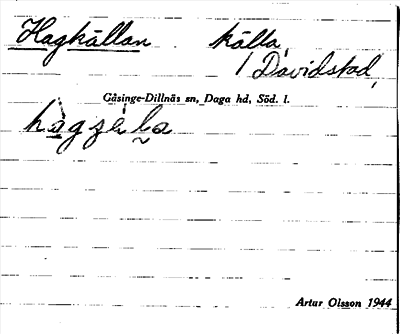 Hagkällan källa,
Davidstod,
Gåsinge-Dillnäs sn, Daga hd, Söd. l.
Artur Olsson 1944